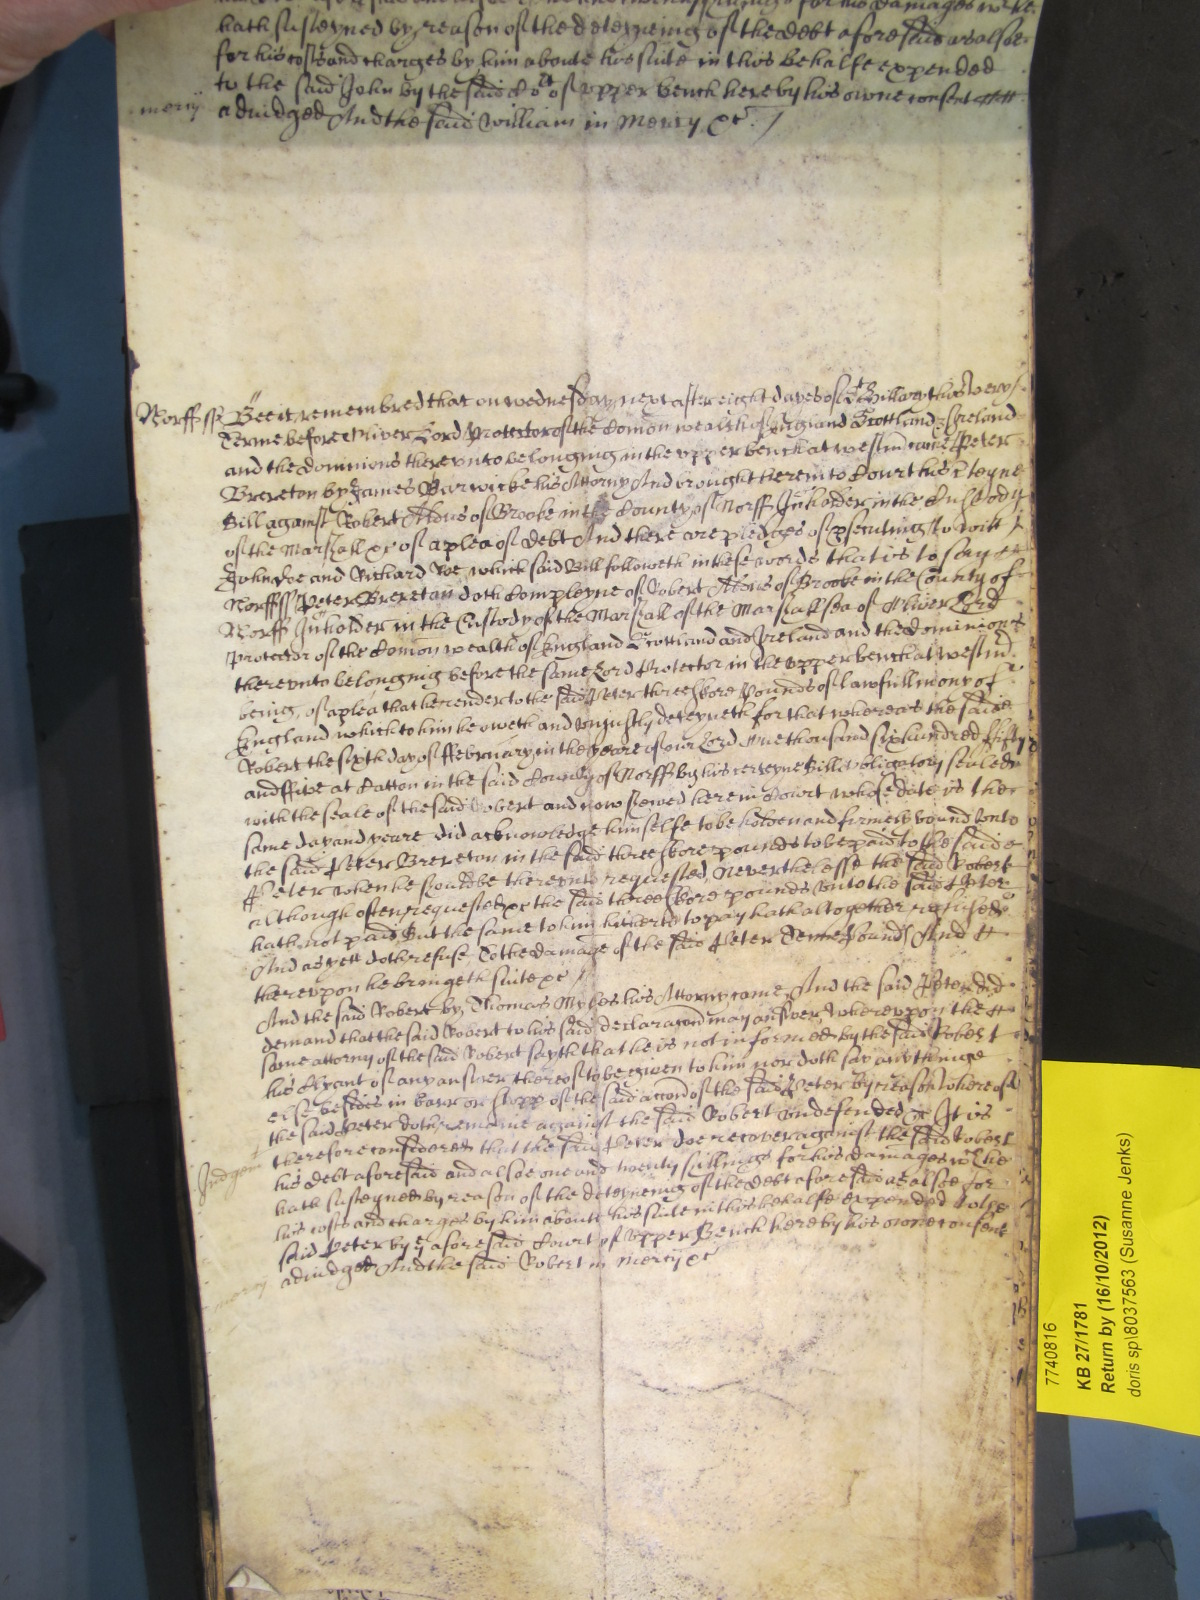 hath susteyned by reason of the deteyneing of the debt aforesaid as alsoe
for his costs and charges by him aboute his suite in this behalfe expended
to the said John by the said Cort of upper bench here by his owne consent
mercy adiudged And the said William in Mercy &c
Norff ss Bee it remembred that on wednesday next after eight dayes of St Hillary this very
Terme before Oliver Lord Protector of the Comon wealth of England Scottland Ireland
and the dominions thereunto belonging in the upper bench at westm came Peter
Brereton by James Barwicke his Attorny And brought here into Court his Cteyne
Bill against Robert Aldus of Brooke in the County of Norff Inholder in the Custody
of the Marshall &c of a plea of debt And there are pledges of psecuting To witt
John Doe and Richard Roe which said Bill followeth in these words that is to say
Norff ss Peter Brereton doth Compleyne of Robert Aldus of Brooke in the County of
Norff Inholder in the Custody of the Marshall of the Marshallsea of Oliver Lord
Protector of the Comon wealth of England Scottland and Ireland and the dominions
thereunto belonging before the same Lord Protector in the upper bench at westm
being, of a plea that he render to the said Peter three score Pounds of lawfull mony of
England which to him he oweth and uniustly deteyneth for that whereas the said
Robert the sixth day of ffebruary in the yeare of our Lord One thousand six hundred fifty
and ffive at Catton in the said County of Norff by his certeyne Bill obligatory sealed
with the seale of the said Robert and now shewed here in Court whose date is the
same day and yeare did acknowledge himselfe to be holden and firmely bound unto
the said Peter Brereton in the said three score pounds to be paid to the said
Peter when he should be thereunto requested, Neverthelesse the said Robert
although often requested &c the said three score pounds unto the said Peter
hath not paid But the same to him hitherto to pay hath altogether refused
And as yett doth refuse To the damage of the said Peter Tenne Pounds And
thereupon he bringeth suite &c
And the said Robert by Thomas his Attorny came And the said Peter did
demand that the said Robert to his said declaracon may answer, whereupon the
same attorny of the said Robert sayth that he is not informed by the said Robert
his Clyant of any answer thereof to be given to him nor doth say any thinge
else besides in barr or stopp of the said accon of the said Peter By reason whereof
the said Peter doth remaine against the said Robert undefended &c It is
Judgemt therefore considered that the said Peter doe recover against the said Robert
his debt aforesaid and alsoe one and twenty shillings for his damages wch he
hath susteyned by reason of the deteyneing of the debt aforesaid as alsoe for
his costs and charges by him aboute his suite in this behalfe expended to the
said Peter by ye aforesaid Court of upper Bench here by his owne consent
mercy adiudged And the said Robert in mercy &c
7740816
KB 27/1781
Return by (16/10/2012)
doris sp\8037563 (Susanne Jenks)